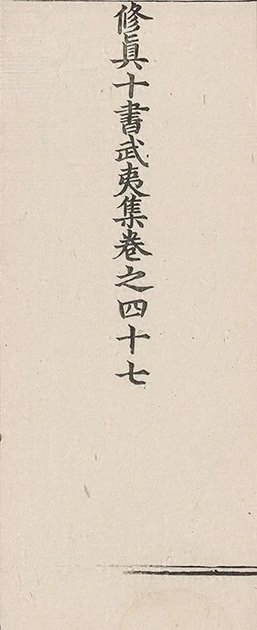 修真十書武夷集卷之四十七